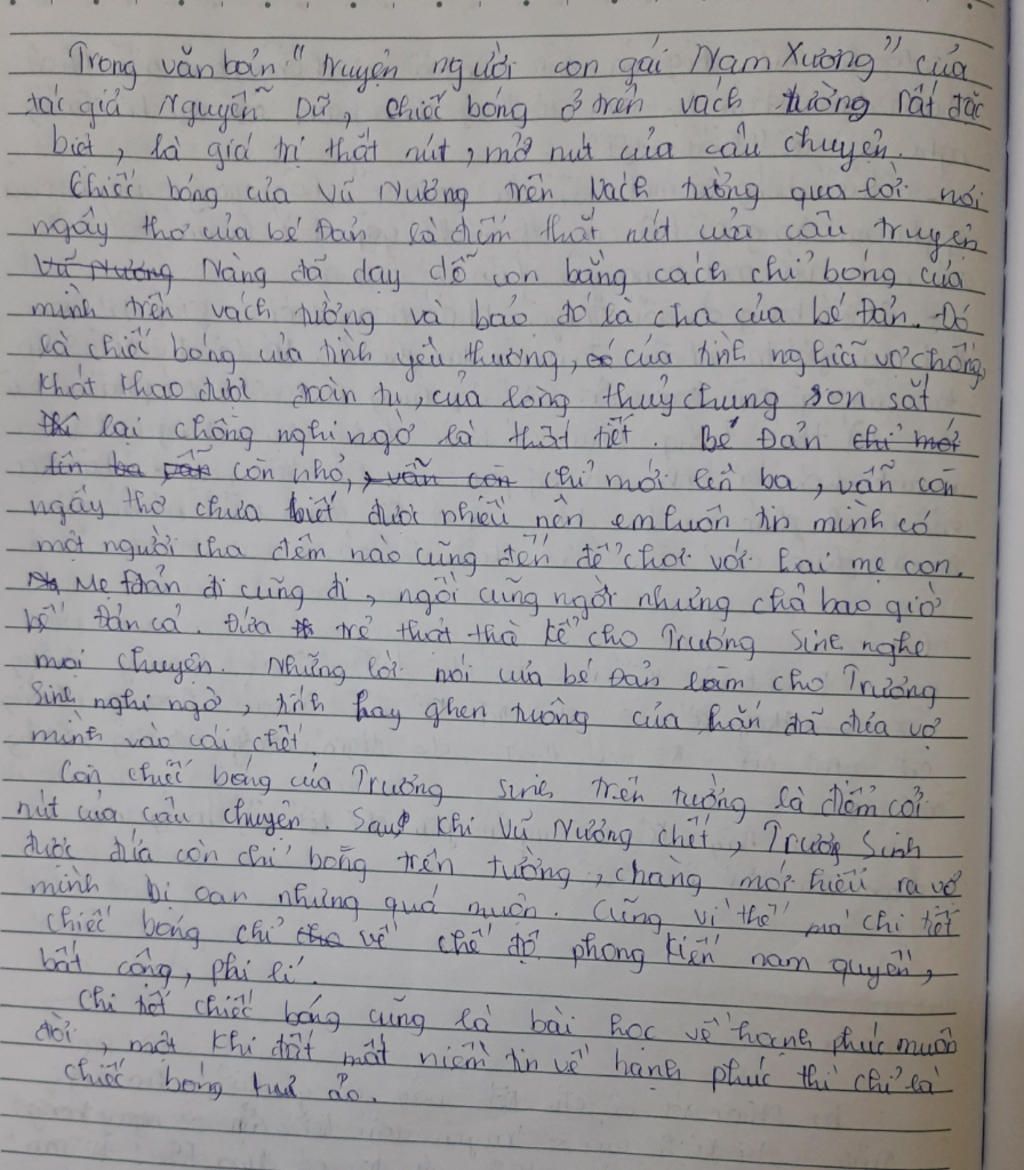 Trong văn bản "truyện người con gái Nam Xương" của
tác giả Nguyễn Dữ, chiếc bóng ở trên vách tường rất đặc
biệt, là giá trị thắt nút, mở nút của câu chuyện.
Chiếc bóng của Vũ Nương trên vách tường qua lời nói
ngây thơ của bé Đản là điểm thắt nút của câu truyện
Vũ Nương Nàng đã dạy dỗ con bằng cách chỉ bóng của
mình trên vách tường và bảo đó là cha của bé Đản. Đó
là chiếc bóng của tình yêu thương, của tình nghĩa vợ chồng,
khát khao được đoàn tụ, của lòng thuỷ chung son sắt
lại chồng nghi ngờ là thất tiết. Bé Đản chỉ mới
lên ba còn nhỏ, vẫn còn chỉ mới lên ba, vẫn còn
ngây thơ chưa biết được nhiều nên em luôn tin mình có
một người cha đêm nào cũng đến để chơi với hai mẹ con.
Mẹ Đản đi cũng đi, ngồi cũng ngồi nhưng chả bao giờ
bế Đản cả. Đứa trẻ thật thà kể cho Trương Sinh nghe
mọi chuyện. Những lời nói của bé Đản làm cho Trương
Sinh nghi ngờ, tính hay ghen tuông của hắn đã đưa vợ
mình vào cái chết.
Còn chiếc bóng của Trương Sinh trên tường là điểm cởi
nút của câu chuyện. Sau khi Vũ Nương chết, Trương Sinh
được đứa con chỉ bóng trên tường, chàng mới hiểu ra vợ
mình bị oan nhưng quá muộn. Cũng vì thế mà chi tiết
chiếc bóng chỉ về chế độ phong kiến nam quyền,
bất công, phi lí.
Chi tiết chiếc bóng cũng là bài học về hạnh phúc muôn
đời, một khi đất mất niềm tin về hạnh phúc thì chỉ là
chiếc bóng hư ảo.